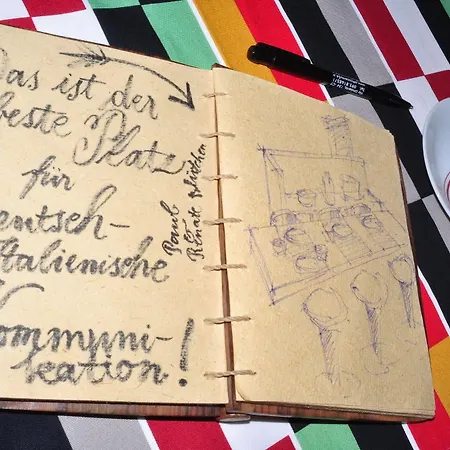 Das ist der
beste Platz
für
Deutsch-
Italienische
Kommuni-
kation!
Paul
&
Renate